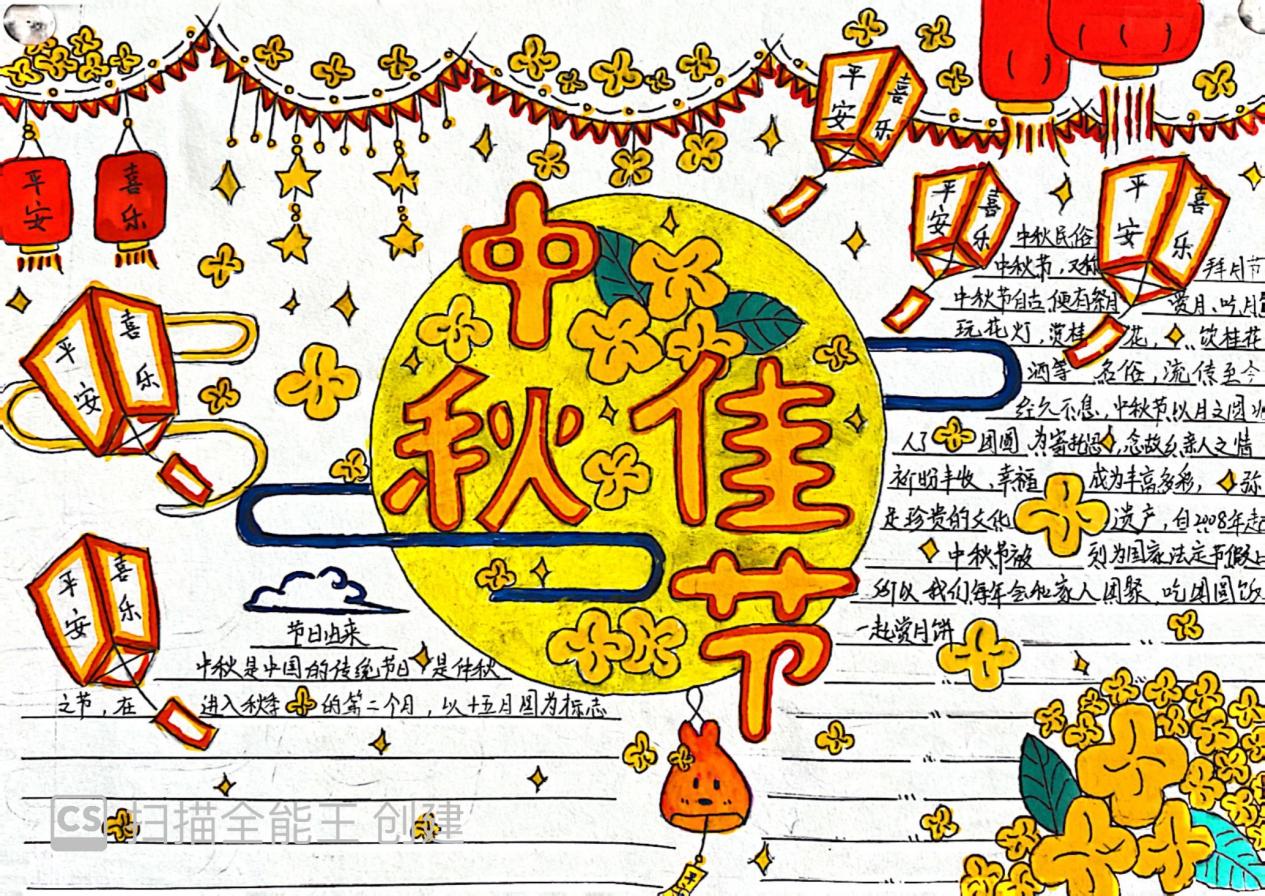 平安
喜乐
平安
喜乐
平安
喜乐
平安
喜乐
平安
喜乐
平安
喜乐
中秋佳节
中秋民俗
中秋节,又称 拜月节
中秋节自古便有祭月 赏月、吃月
玩花灯,赏桂花, 饮桂花
酒等 名俗,流传至今
经久不息、中秋节以月之圆
人了 团圆 为寄托思 念故乡亲人之情
祈盼丰收、幸福 成为丰富多彩,弥
足珍贵的文化 遗产,自2008年起
中秋节被 列为国家法定节假
所以我们每年会和家人团聚,吃团圆饭
一起赏月饼
节日由来
中秋是中国的传统节日 是仲秋
之节,在 进入秋季 的第二个月,以十五月圆为标志
CS 扫描全能王 创建